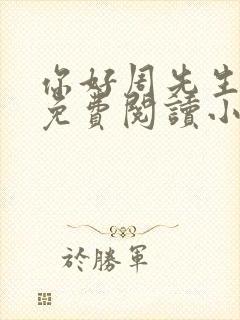 你好周先生
免費閱讀小
於勝軍